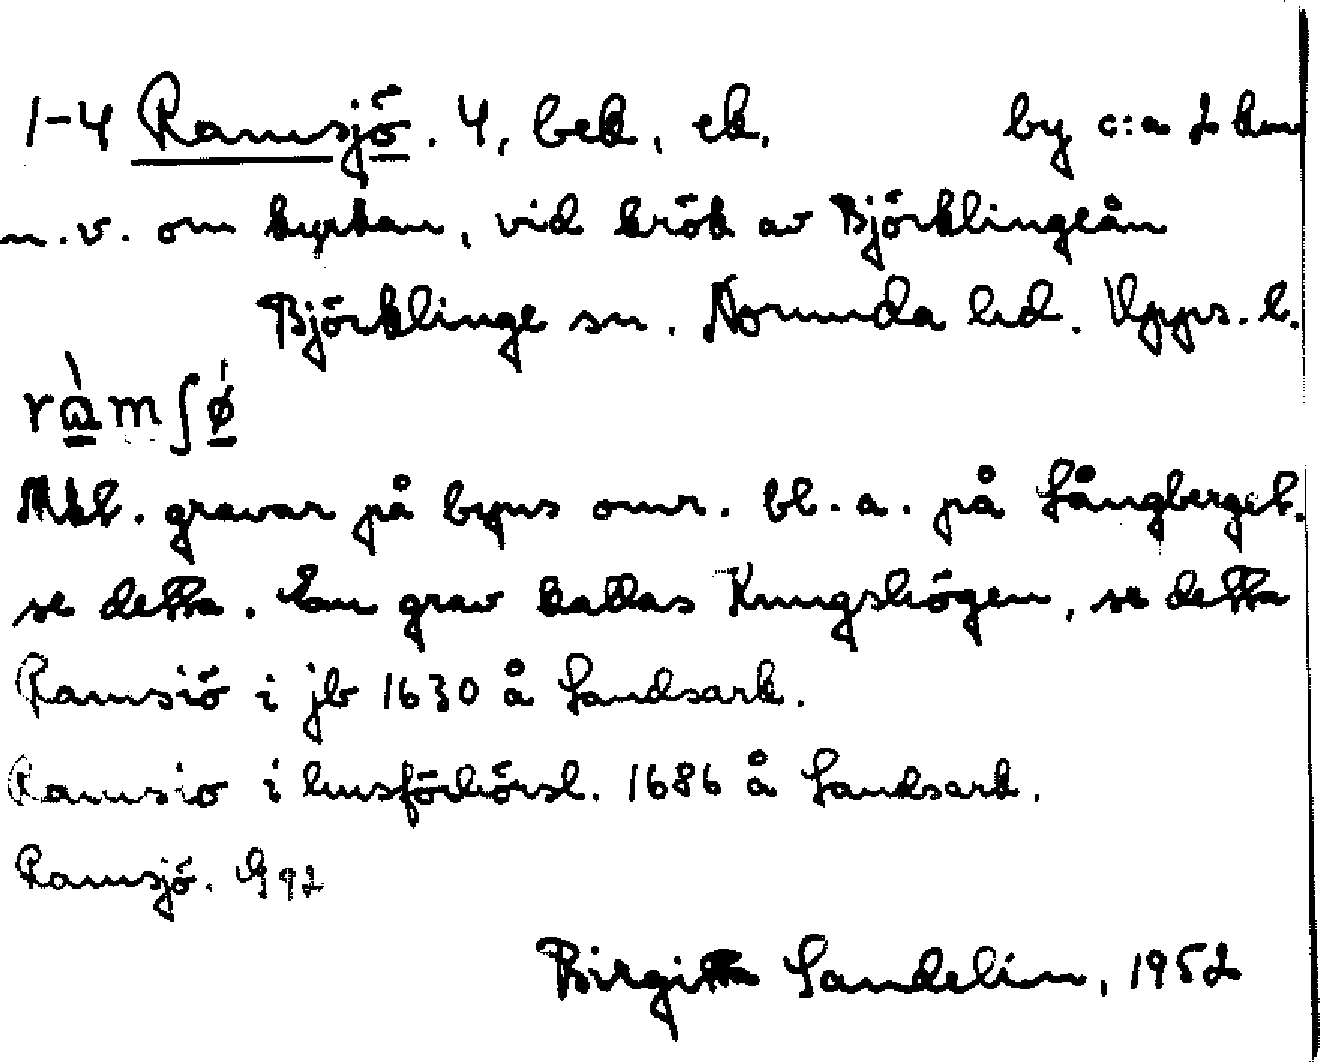 1-4 Ramsjö. 4, bek, ek, by c:a 2 km
n.v. om kyrkan, vid krök av Björklingeån
Björklinge sn. Norunda hd. Upps. l.
ràmʃø
Mkt. gravar på byns omr. bl. a. på Långberget.
se detta. En grav kallas Kungshögen, se detta
Ramsiö i jb 1630 å Landsark.
Ramsio i husförhörsl. 1686 å Landsark.
Ramsjö. G 92
Birgitta Sandelin, 1952